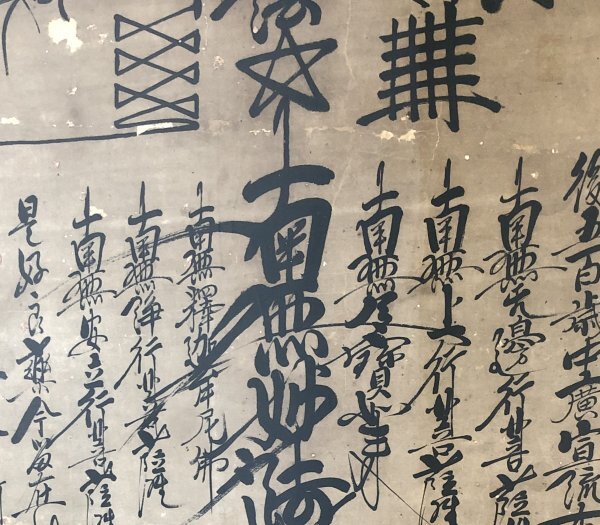 後五百歳中廣宣流
南無无邊行菩薩
南無上行菩薩
南無多寶如来
南無妙法
南無釋迦牟尼佛
南無淨行菩薩
南無安立行菩薩
是好良藥今留在